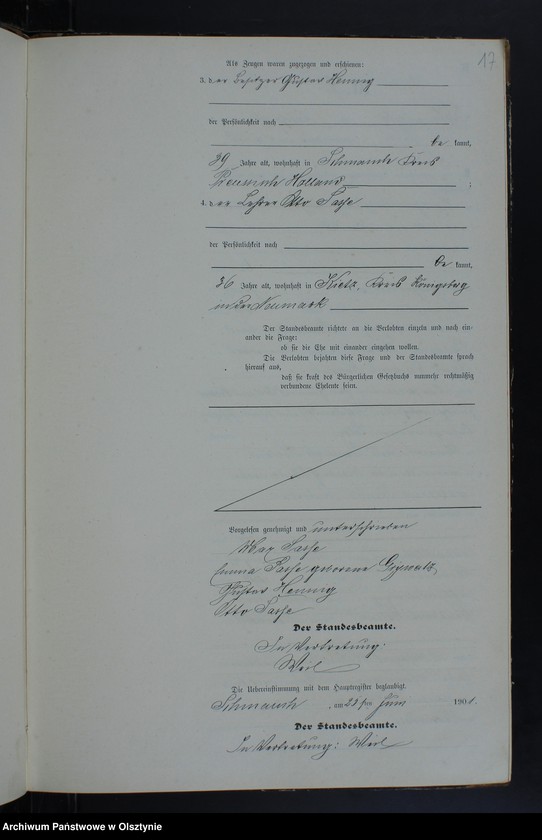 17
Als Zeugen waren zugezogen und erschienen:
3. der Besitzer Gustav Hennig
der Persönlichkeit nach
be kannt,
29 Jahre alt, wohnhaft in Schmauch Kreis
Preussisch Holland ;
4. der Lehrer Otto Sasse
der Persönlichkeit nach
be kannt,
26 Jahre alt, wohnhaft in Kietz, Kreis Königsberg
in der Neumark
Der Standesbeamte richtete an die Verlobten einzeln und nach ein-
ander die Frage:
ob sie die Ehe mit einander eingehen wollen.
Die Verlobten bejahten diese Frage und der Standesbeamte sprach
hierauf aus,
daß sie kraft des Bürgerlichen Gesetzbuchs nunmehr rechtmäßig
verbundene Eheleute seien.
Vorgelesen genehmigt und unterschrieben
Max Sasse
Emma Sasse geborene
Gustav Hennig
Otto Sasse
Der Standesbeamte.
In Vertretung:
Weil
Die Uebereinstimmung mit dem Hauptregister beglaubigt.
Schmauch , am 23ten Juni 1901.
Der Standesbeamte.
In Vertretung: Weil
Archiwum Państwowe w Olsztynie